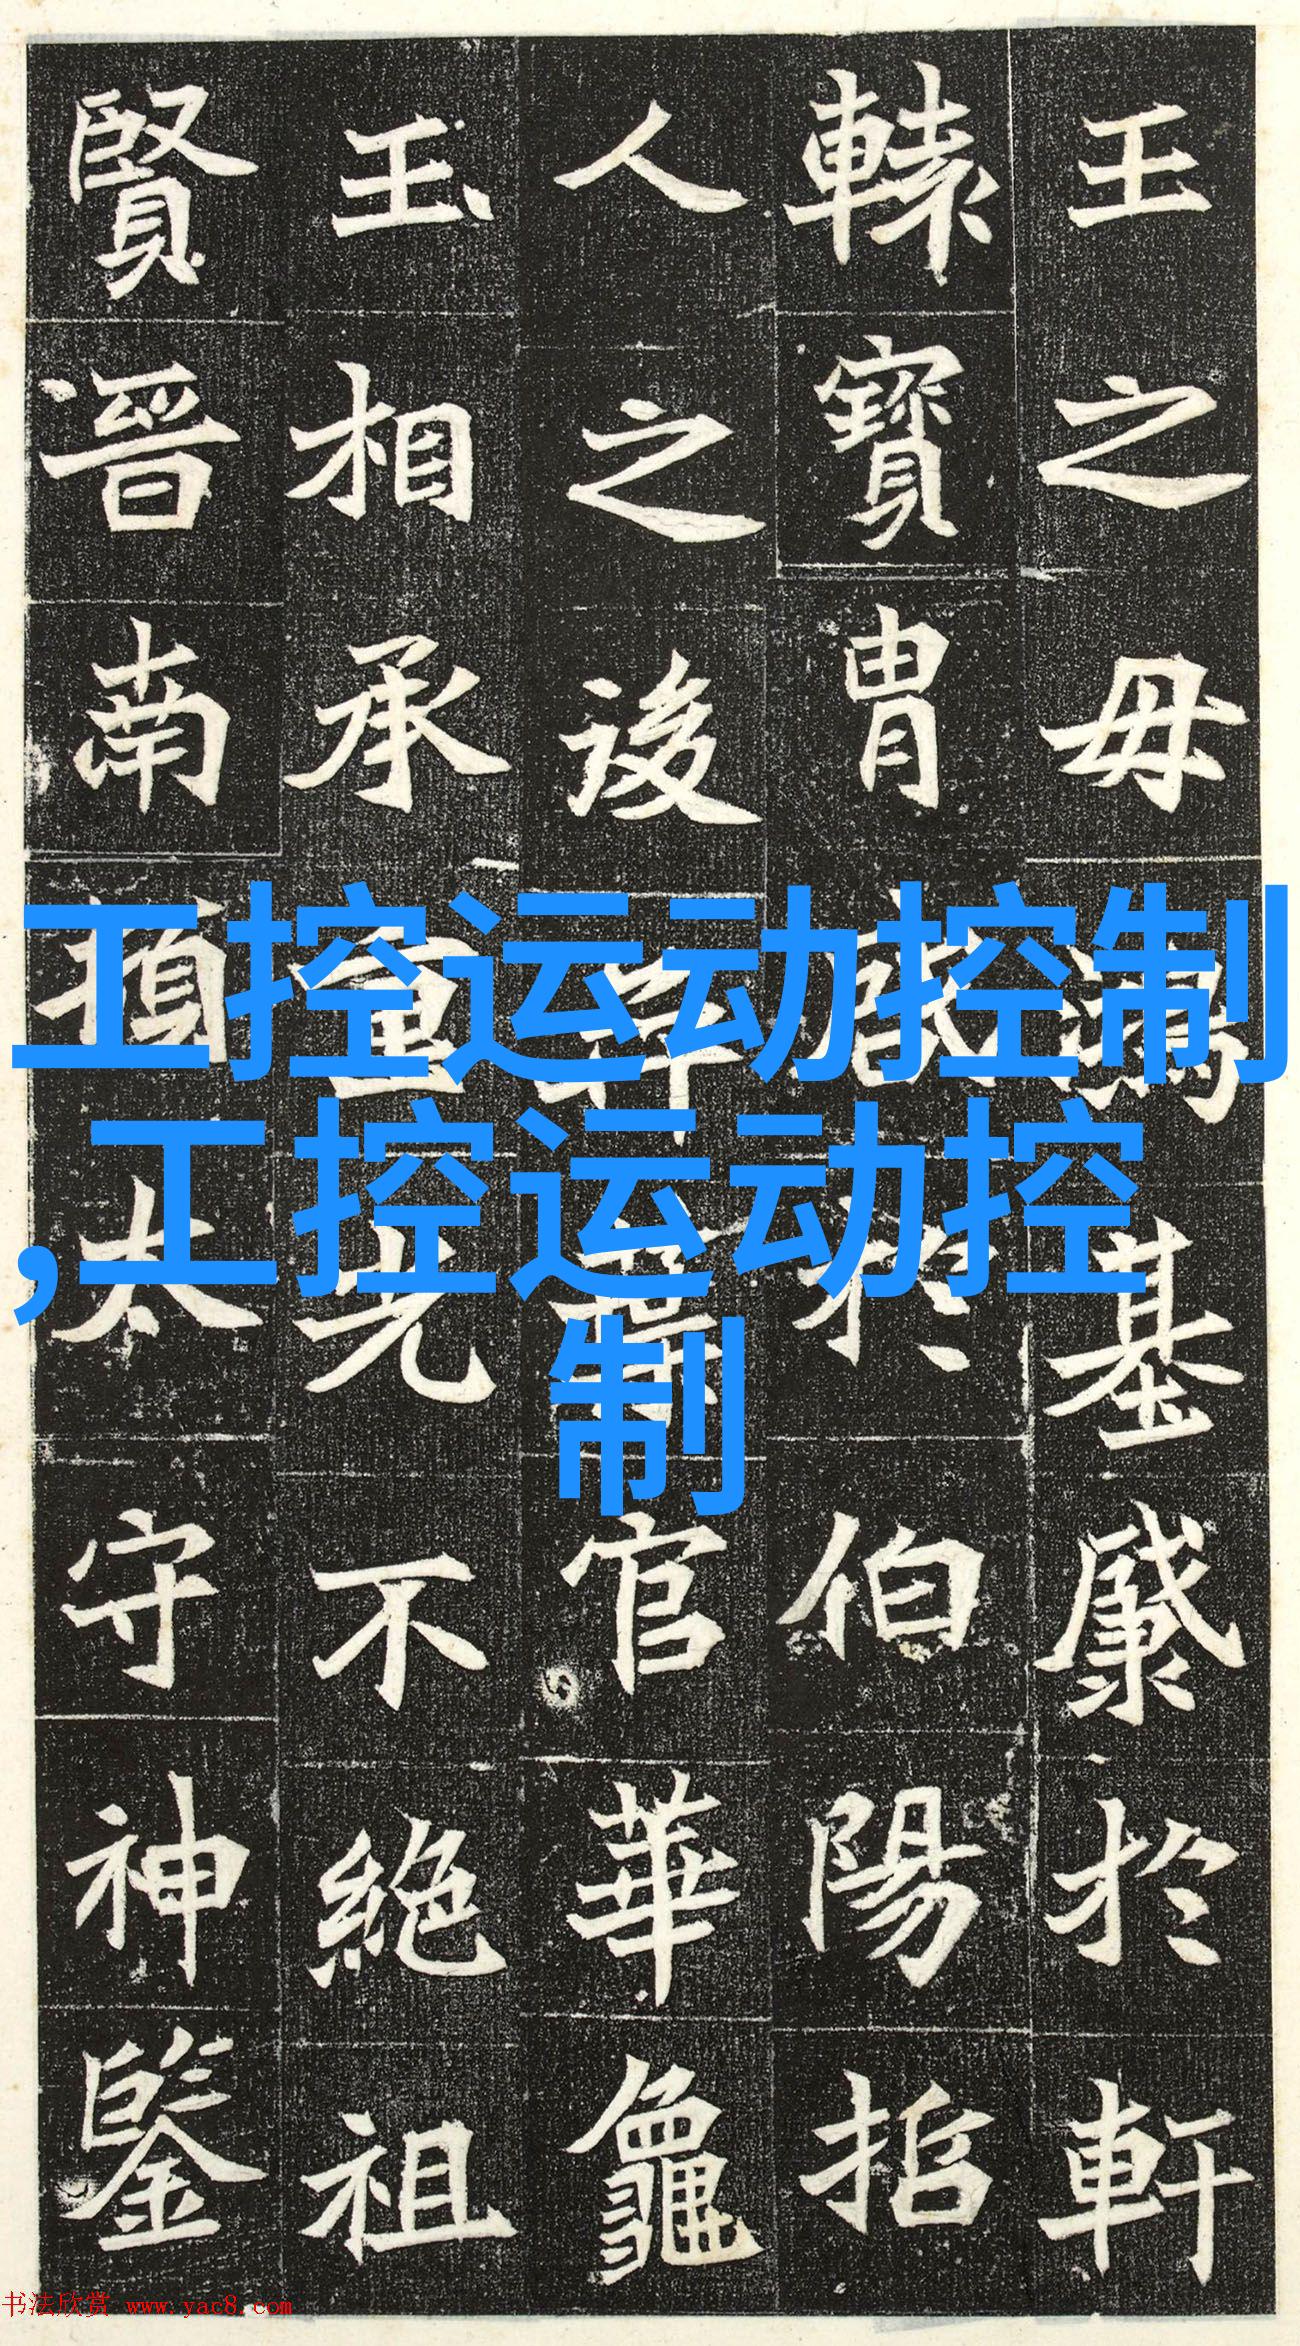 王之母鴻基於軒
轅寶胄於伯陽指
人之後官華龜
玉相承重光不絕祖
賢晉南頓太守神鑒
工控运动控制
,工控运动控
制
书法欣赏 www.yac8.com